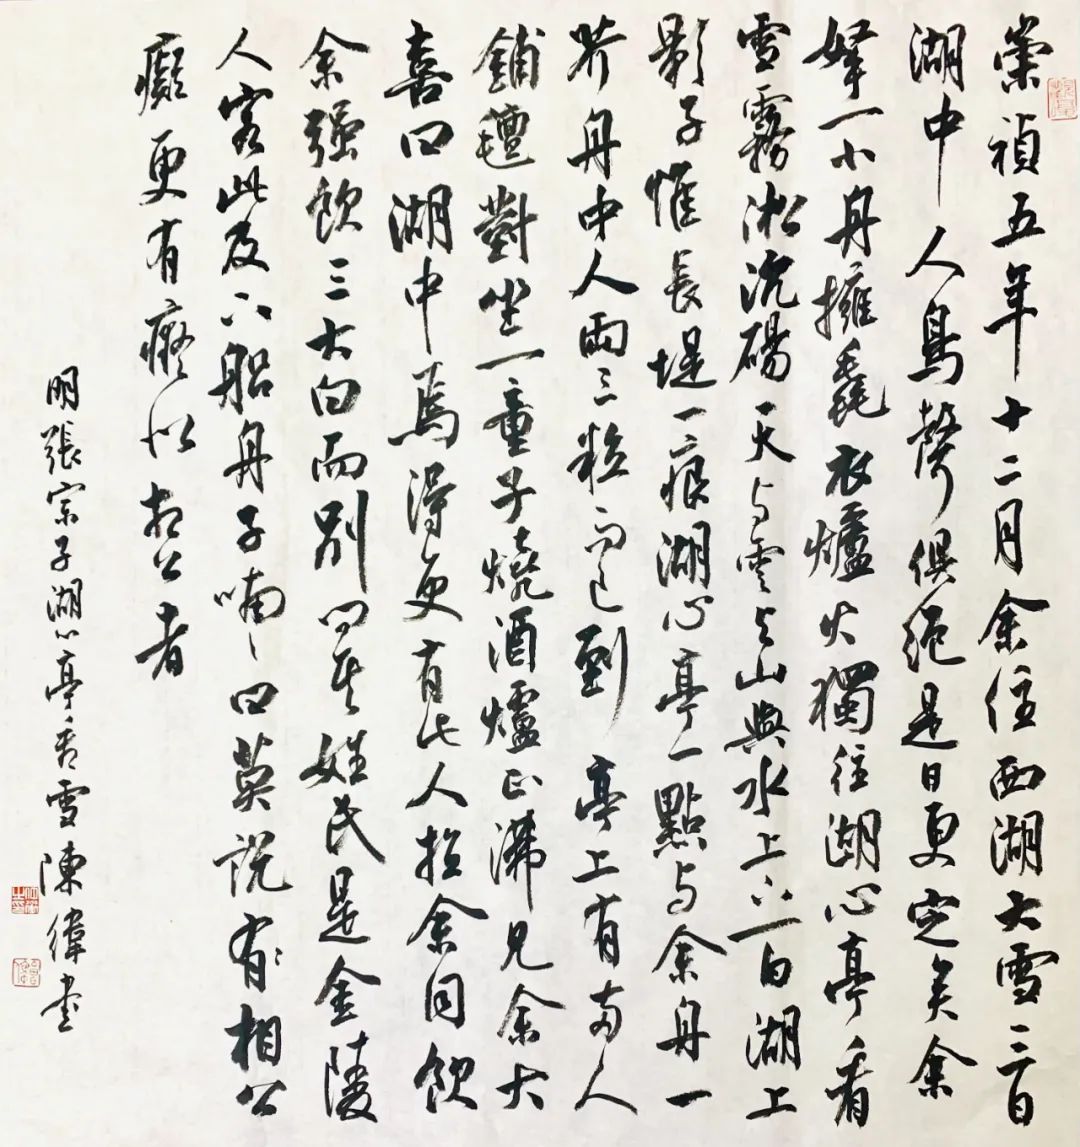 崇禎五年十二月余住西湖大雪三日
湖中人鳥聲俱絕是日更定矣余
拏一小舟擁毳衣爐火獨往湖心亭看
雪霧淞沆碭天与雲与山與水上下一白湖上
影子惟長堤一痕湖心亭一點与余舟一
芥舟中人兩三粒而已到亭上有兩人
鋪氈對坐一童子燒酒爐正沸見余大
喜曰湖中焉得更有此人拉余同飲
余強飲三大白而別問其姓氏是金陵
人客此及下船舟子喃〻曰莫說有相公
癡更有癡似相公者
明張宗子湖心亭看雪陳緯書